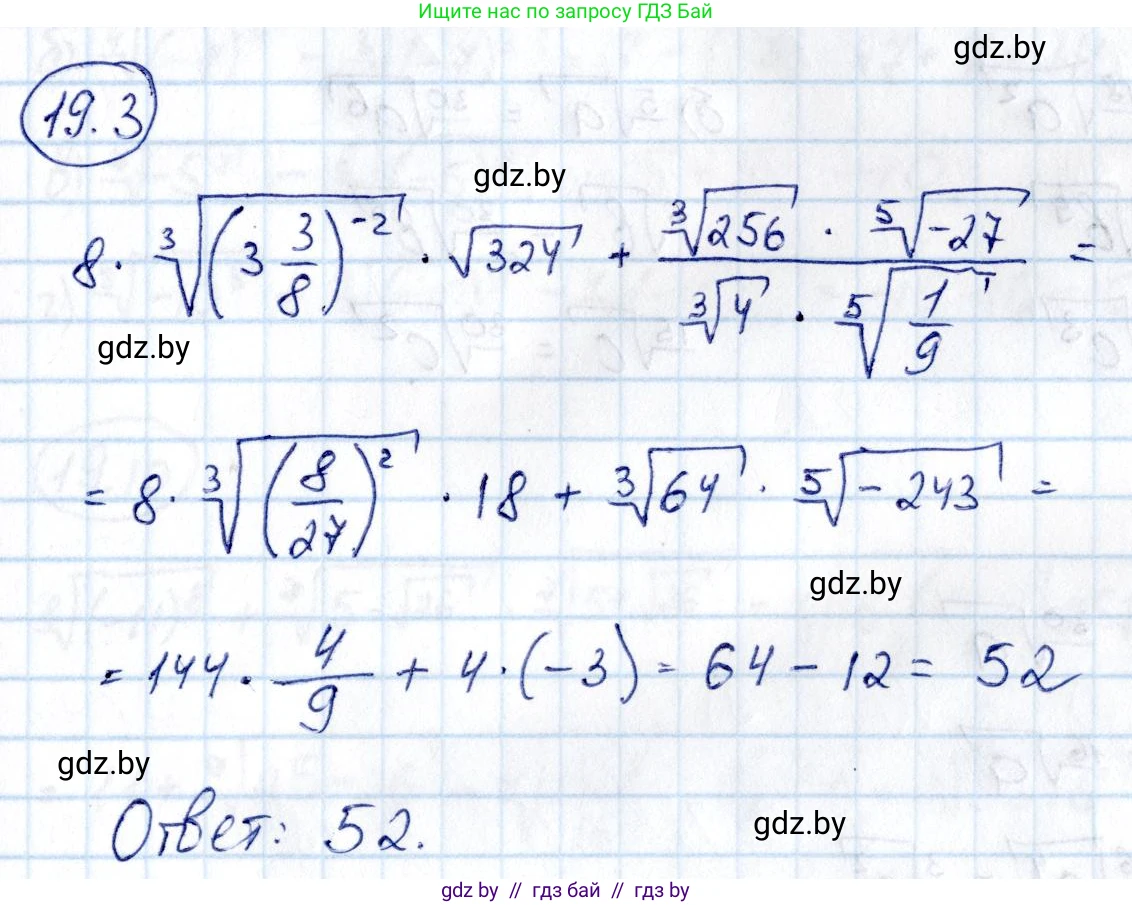 Ищите нас по запросу ГДЗ Бай
gdz.by
19.3
gdz.by
8 · ∛((3 3/8)^(-2)) · √324 + (∛256 · ⁵√(-27)) / (∛4 · ⁵√(1/9)) =
gdz.by
= 8 · ∛((8/27)^2) · 18 + ∛64 · ⁵√(-243) =
gdz.by
= 144 · 4/9 + 4 · (-3) = 64 - 12 = 52
gdz.by
Ответ: 52.
gdz.by
gdz by // гдз бай // гдз by